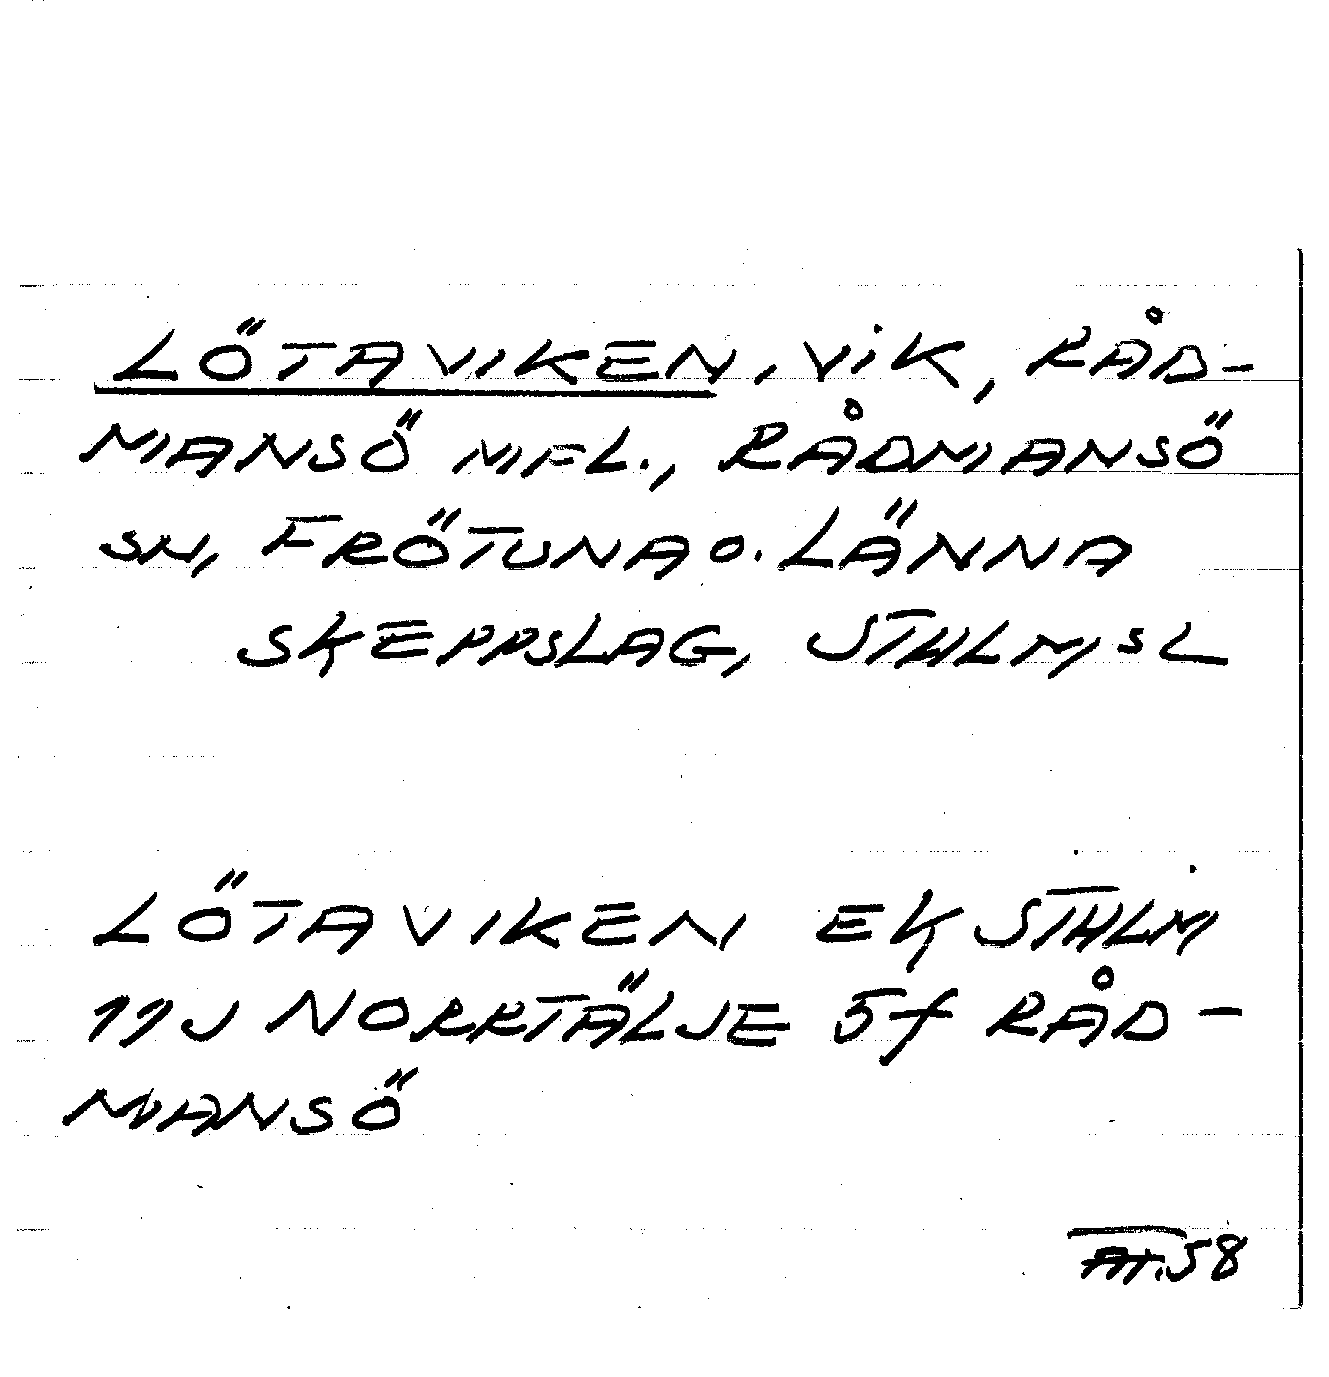 LÖTAVIKEN, VIK, RÅD-
MANSÖ MFL., RÅDMANSÖ
SN, FRÖTUNA O. LÄNNA
SKEPPSLAG, STHLMSL
LÖTAVIKEN EK STHLM
11J NORRTÄLJE 5f RÅD-
MANSÖ
58